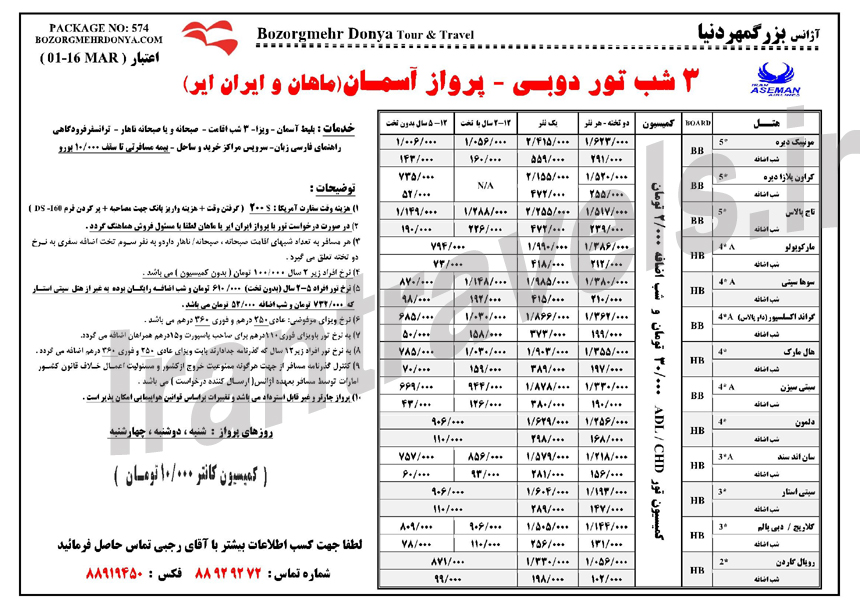 PACKAGE NO: 574
BOZORGMEHRDONYA.COM
اعتبار ( 01-16 MAR )
Bozorgmehr Donya Tour & Travel
آژانس بزرگمهر دنیا
IRAN ASEMAN AIRLINES
۳ شب تور دوبی - پرواز آسمان(ماهان و ایران ایر)
خدمات : بلیط آسمان - ویزا- ۳ شب اقامت - صبحانه و یا صبحانه ناهار - ترانسفرفرودگاهی
راهنمای فارسی زبان- سرویس مراکز خرید و ساحل - بیمه مسافرتی تا سقف ۱۰/۰۰۰ یورو
توضیحات :
۱) هزینه وقت سفارت آمریکا : ۲۰۰ $ ( گرفتن وقت + هزینه واریز بانک جهت مصاحبه + پر کردن فرم DS -160 )
۲) در صورت درخواست تور با پرواز ایران ایر یا ماهان لطفا با مسئول فروش هماهنگ گردد .
۳) هر مسافر به تعداد شبهای اقامت صبحانه ، صبحانه/ ناهار داردو به نفر سوم تخت اضافه سفری به نرخ
دو تخته تعلق می گیرد .
۴) نرخ افراد زیر ۲ سال ۱۰۰/۰۰۰ تومان ( بدون کمیسیون ) می باشد .
۵) نرخ تور افراد ۵-۲ سال (بدون تخت) ۶۱۰/۰۰۰ تومان و شب اضافه رایگان بوده به غیر از هتل سیتی استار
که ۷۳۲/۰۰۰ تومان و شب اضافه ۵۲/۰۰۰ تومان می باشد .
۶) نرخ ویزای مرفوضی: عادی ۲۵۰ درهم و فوری ۳۶۰ درهم می باشد .
۷) به نرخ تور باویزای فوری ۱۱۰درهم برای صاحب پاسپورت و۱۵درهم همراهان اضافه می گردد.
۸) به نرخ تور نفرات زیر۱۲ سال که گذرنامه جدادارند بابت ویزای عادی ۲۵۰ و فوری ۳۶۰ درهم اضافه می گردد .
۹) کنترل گذرنامه مسافر از جهت هرگونه ممنوعیت خروج ازکشور و مسئولیت اعمال خلاف قانون کشور
امارات توسط مسافر بعهده آژانس( ارسال کننده درخواست ) می باشد .
۱۰) پرواز چارتر و غیر قابل استرداد می باشد و تغییرات براساس قوانین هواپیمایی امکان پذیر است .
روزهای پرواز : شنبه ، دوشنبه ، چهارشنبه
( کمیسیون کانتر ۱۰/۰۰۰ تومان )
لطفا جهت کسب اطلاعات بیشتر با آقای رجبی تماس حاصل فرمائید
شماره تماس : ۸۸۹۲۹۲۷۲ فکس : ۸۸۹۱۹۴۵۰
هتل BOARD کمیسیون دو تخته - هر نفر یک نفر ۱۲-۲ سال با تخت ۱۲-۵ سال بدون تخت
موونپیک دیره 5* BB ۱/۶۲۳/۰۰۰ ۲/۴۱۵/۰۰۰ ۱/۰۵۶/۰۰۰ ۱/۰۰۶/۰۰۰
شب اضافه ۲۹۱/۰۰۰ ۵۵۹/۰۰۰ ۱۶۰/۰۰۰ ۱۴۳/۰۰۰
کراون پلازا دیره 5* BB ۱/۵۲۰/۰۰۰ ۲/۱۵۵/۰۰۰ N/A ۷۳۵/۰۰۰
شب اضافه ۲۵۵/۰۰۰ ۴۷۲/۰۰۰ ۵۲/۰۰۰
تاج پالاس 5* BB ۱/۵۱۷/۰۰۰ ۲/۲۵۵/۰۰۰ ۱/۲۸۸/۰۰۰ ۱/۱۴۹/۰۰۰
شب اضافه ۲۳۹/۰۰۰ ۴۷۲/۰۰۰ ۲۲۶/۰۰۰ ۱۹۰/۰۰۰
مارکوپولو 4* A HB ۱/۳۸۶/۰۰۰ ۱/۹۹۰/۰۰۰ ۷۹۴/۰۰۰
شب اضافه ۲۱۲/۰۰۰ ۴۱۸/۰۰۰ ۷۳/۰۰۰
سوها سیتی 4* A HB ۱/۳۸۰/۰۰۰ ۱/۹۸۵/۰۰۰ ۱/۱۴۸/۰۰۰ ۸۷۰/۰۰۰
شب اضافه ۲۱۰/۰۰۰ ۴۱۵/۰۰۰ ۱۹۲/۰۰۰ ۹۸/۰۰۰
گراند اکسلسیور(داو پالاس) 4*A BB ۱/۳۶۲/۰۰۰ ۱/۸۶۶/۰۰۰ ۱/۰۳۰/۰۰۰ ۶۸۵/۰۰۰
شب اضافه ۱۹۹/۰۰۰ ۳۷۳/۰۰۰ ۱۵۸/۰۰۰ ۵۰/۰۰۰
هال مارک 4* HB ۱/۳۵۵/۰۰۰ ۱/۹۰۳/۰۰۰ ۱/۰۳۰/۰۰۰ ۷۸۵/۰۰۰
شب اضافه ۱۹۷/۰۰۰ ۳۸۹/۰۰۰ ۱۵۹/۰۰۰ ۷۰/۰۰۰
سیتی سیزن 4* A BB ۱/۳۳۰/۰۰۰ ۱/۸۷۸/۰۰۰ ۹۴۴/۰۰۰ ۶۶۹/۰۰۰
شب اضافه ۱۹۰/۰۰۰ ۳۸۰/۰۰۰ ۱۲۶/۰۰۰ ۴۳/۰۰۰
دلمون 4* HB ۱/۲۵۶/۰۰۰ ۱/۶۲۹/۰۰۰ ۹۰۶/۰۰۰
شب اضافه ۱۶۸/۰۰۰ ۲۹۸/۰۰۰ ۱۱۰/۰۰۰
سان اند سند 3*A HB ۱/۲۱۸/۰۰۰ ۱/۵۷۹/۰۰۰ ۸۵۶/۰۰۰ ۷۵۷/۰۰۰
شب اضافه ۱۵۶/۰۰۰ ۲۸۱/۰۰۰ ۹۳/۰۰۰ ۶۰/۰۰۰
سیتی استار 3* HB ۱/۱۹۳/۰۰۰ ۱/۶۰۴/۰۰۰ ۹۰۶/۰۰۰
شب اضافه ۱۴۷/۰۰۰ ۲۸۹/۰۰۰ ۱۱۰/۰۰۰
کلاریج / دبی پالم 3* HB ۱/۱۴۴/۰۰۰ ۱/۵۰۵/۰۰۰ ۹۰۶/۰۰۰ ۸۰۹/۰۰۰
شب اضافه ۱۳۱/۰۰۰ ۲۵۶/۰۰۰ ۱۱۰/۰۰۰ ۷۸/۰۰۰
رویال گاردن 2* HB ۱/۰۵۶/۰۰۰ ۱/۳۳۰/۰۰۰ ۸۷۱/۰۰۰
شب اضافه ۱۰۲/۰۰۰ ۱۹۸/۰۰۰ ۹۹/۰۰۰
کمیسیون تور ADL / CHD ۳۰/۰۰۰ تومان و شب اضافه ۲/۰۰۰ تومان
irantravels.ir